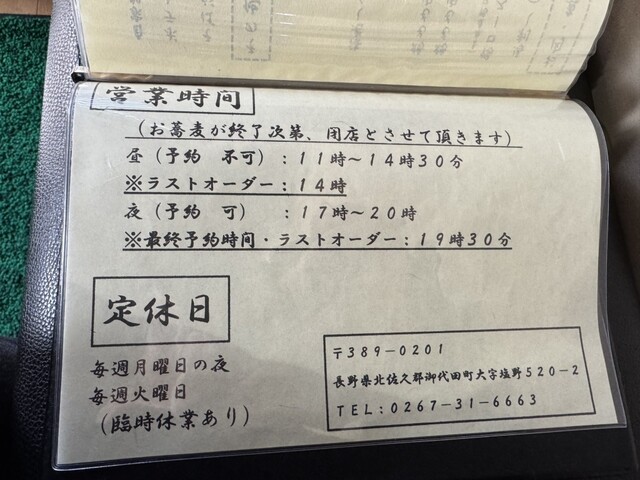 営業時間
(お蕎麦が終了次第、閉店とさせて頂きます)
昼(予約 不可):11時〜14時30分
※ラストオーダー:14時
夜(予約 可) :17時〜20時
※最終予約時間・ラストオーダー:19時30分
定休日
毎週月曜日の夜
毎週火曜日
(臨時休業あり)
〒389-0201
長野県北佐久郡御代田町大字塩野520-2
TEL:0267-31-6663